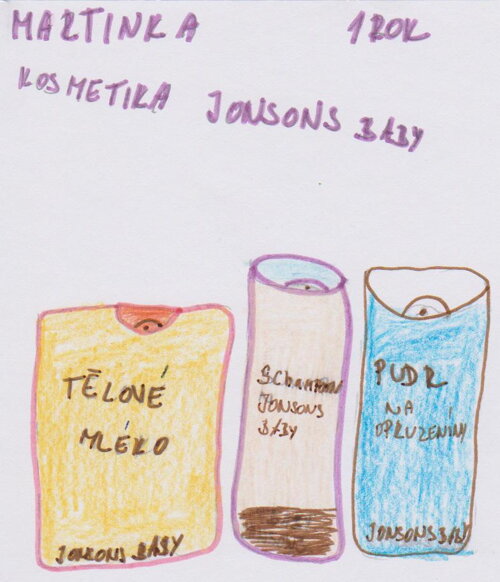 MARTINKA 1 ROK
KOSMETIKA JONSONS BABY
TĚLOVÉ
MLÉKO
JONSONS BABY
SCHAMPON
JONSONS
BABY
PUDR
NA
OPRUZENINY
JONSONS BABY